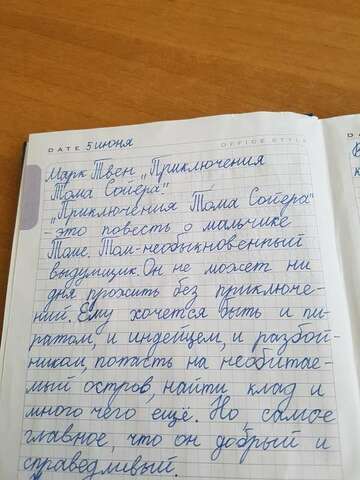 DATE 5 июня OFFICE STYL
Марк Твен „Приключения
Тома Сойера"
„Приключения Тома Сойера"
- это повесть о мальчике
Томе. Том-необыкновенный
выдумщик. Он не может ни
дня прожить без приключе-
ний. Ему хочется быть и пи-
ратом, и индейцем, и разбой-
ником, попасть на необитае-
мый остров, найти клад и
много чего ещё. Но самое
главное, что он добрый и
справедливый.